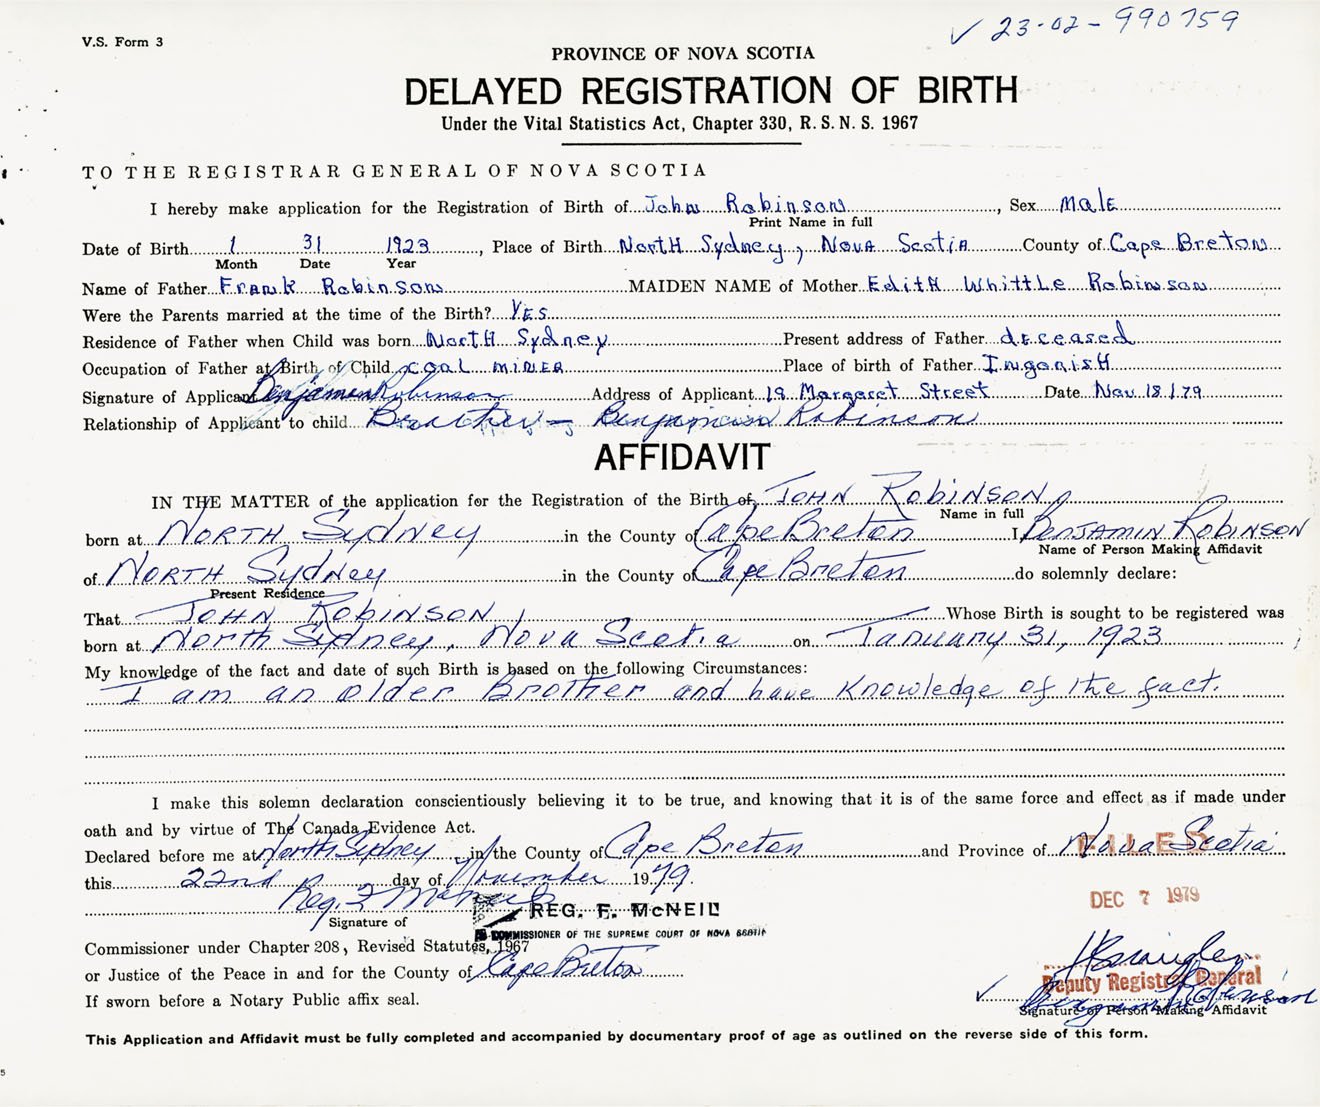 ✓ 23-02-990759
V.S. Form 3
PROVINCE OF NOVA SCOTIA
DELAYED REGISTRATION OF BIRTH
Under the Vital Statistics Act, Chapter 330, R.S.N.S. 1967
TO THE REGISTRAR GENERAL OF NOVA SCOTIA
I hereby make application for the Registration of Birth of John Robinson, Sex Male
Print Name in full
Date of Birth 1 31 1923, Place of Birth North Sydney, Nova Scotia County of Cape Breton
Month Date Year
Name of Father Frank Robinson MAIDEN NAME of Mother Edith Whittle Robinson
Were the Parents married at the time of the Birth? Yes
Residence of Father when Child was born North Sydney Present address of Father deceased
Occupation of Father at Birth of Child coal miner Place of birth of Father Ingonish
Signature of Applicant Benjamin Robinson Address of Applicant 19 Margaret Street Date Nov. 18/79
Relationship of Applicant to child Brother - Benjamin Robinson
AFFIDAVIT
IN THE MATTER of the application for the Registration of the Birth of JOHN ROBINSON
Name in full
born at NORTH Sydney in the County of Cape Breton I BENJAMIN ROBINSON
Name of Person Making Affidavit
of NORTH Sydney in the County of Cape Breton do solemnly declare:
Present Residence
That JOHN ROBINSON Whose Birth is sought to be registered was
born at North Sydney, Nova Scotia on January 31, 1923
My knowledge of the fact and date of such Birth is based on the following Circumstances:
I am an older Brother and have Knowledge of the fact.
I make this solemn declaration conscientiously believing it to be true, and knowing that it is of the same force and effect as if made under
oath and by virtue of The Canada Evidence Act.
Declared before me at North Sydney in the County of Cape Breton and Province of Nova Scotia
FILED
this 22nd day of November 1979.
DEC 7 1979
Reg. F McNeil
REG. F. McNEIL
Signature of
A COMMISSIONER OF THE SUPREME COURT OF NOVA SCOTIA
Commissioner under Chapter 208, Revised Statutes, 1967
or Justice of the Peace in and for the County of Cape Breton
Deputy Registrar General
If sworn before a Notary Public affix seal.
✓ Benjamin Robinson
Signature of Person Making Affidavit
This Application and Affidavit must be fully completed and accompanied by documentary proof of age as outlined on the reverse side of this form.
5